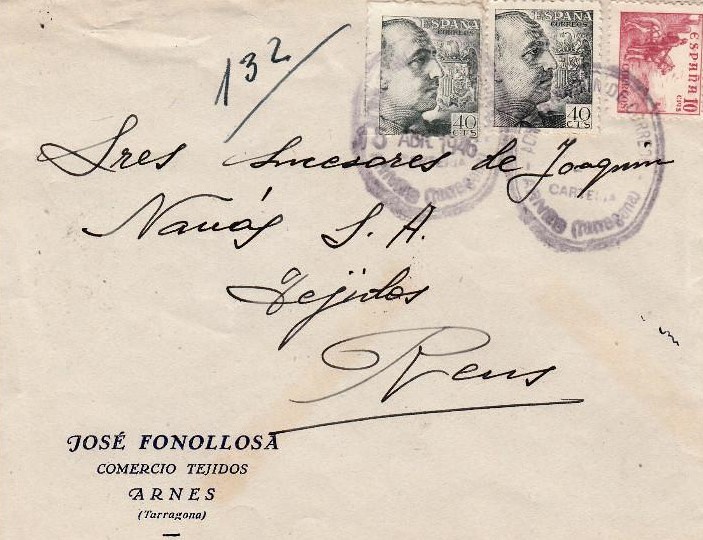 132/
ESPAÑA
CORREOS
40
CTS
ESPAÑA
CORREOS
40
CTS
ESPAÑA 10
CORREOS CTS
ABR. 1946
ARNES (Tarragona)
CARTERIA
ARNES (Tarragona)
Sres Sucesores de Joaquin
Navás S. A.
Tejidos
Reus
JOSÉ FONOLLOSA
COMERCIO TEJIDOS
ARNES
(Tarragona)